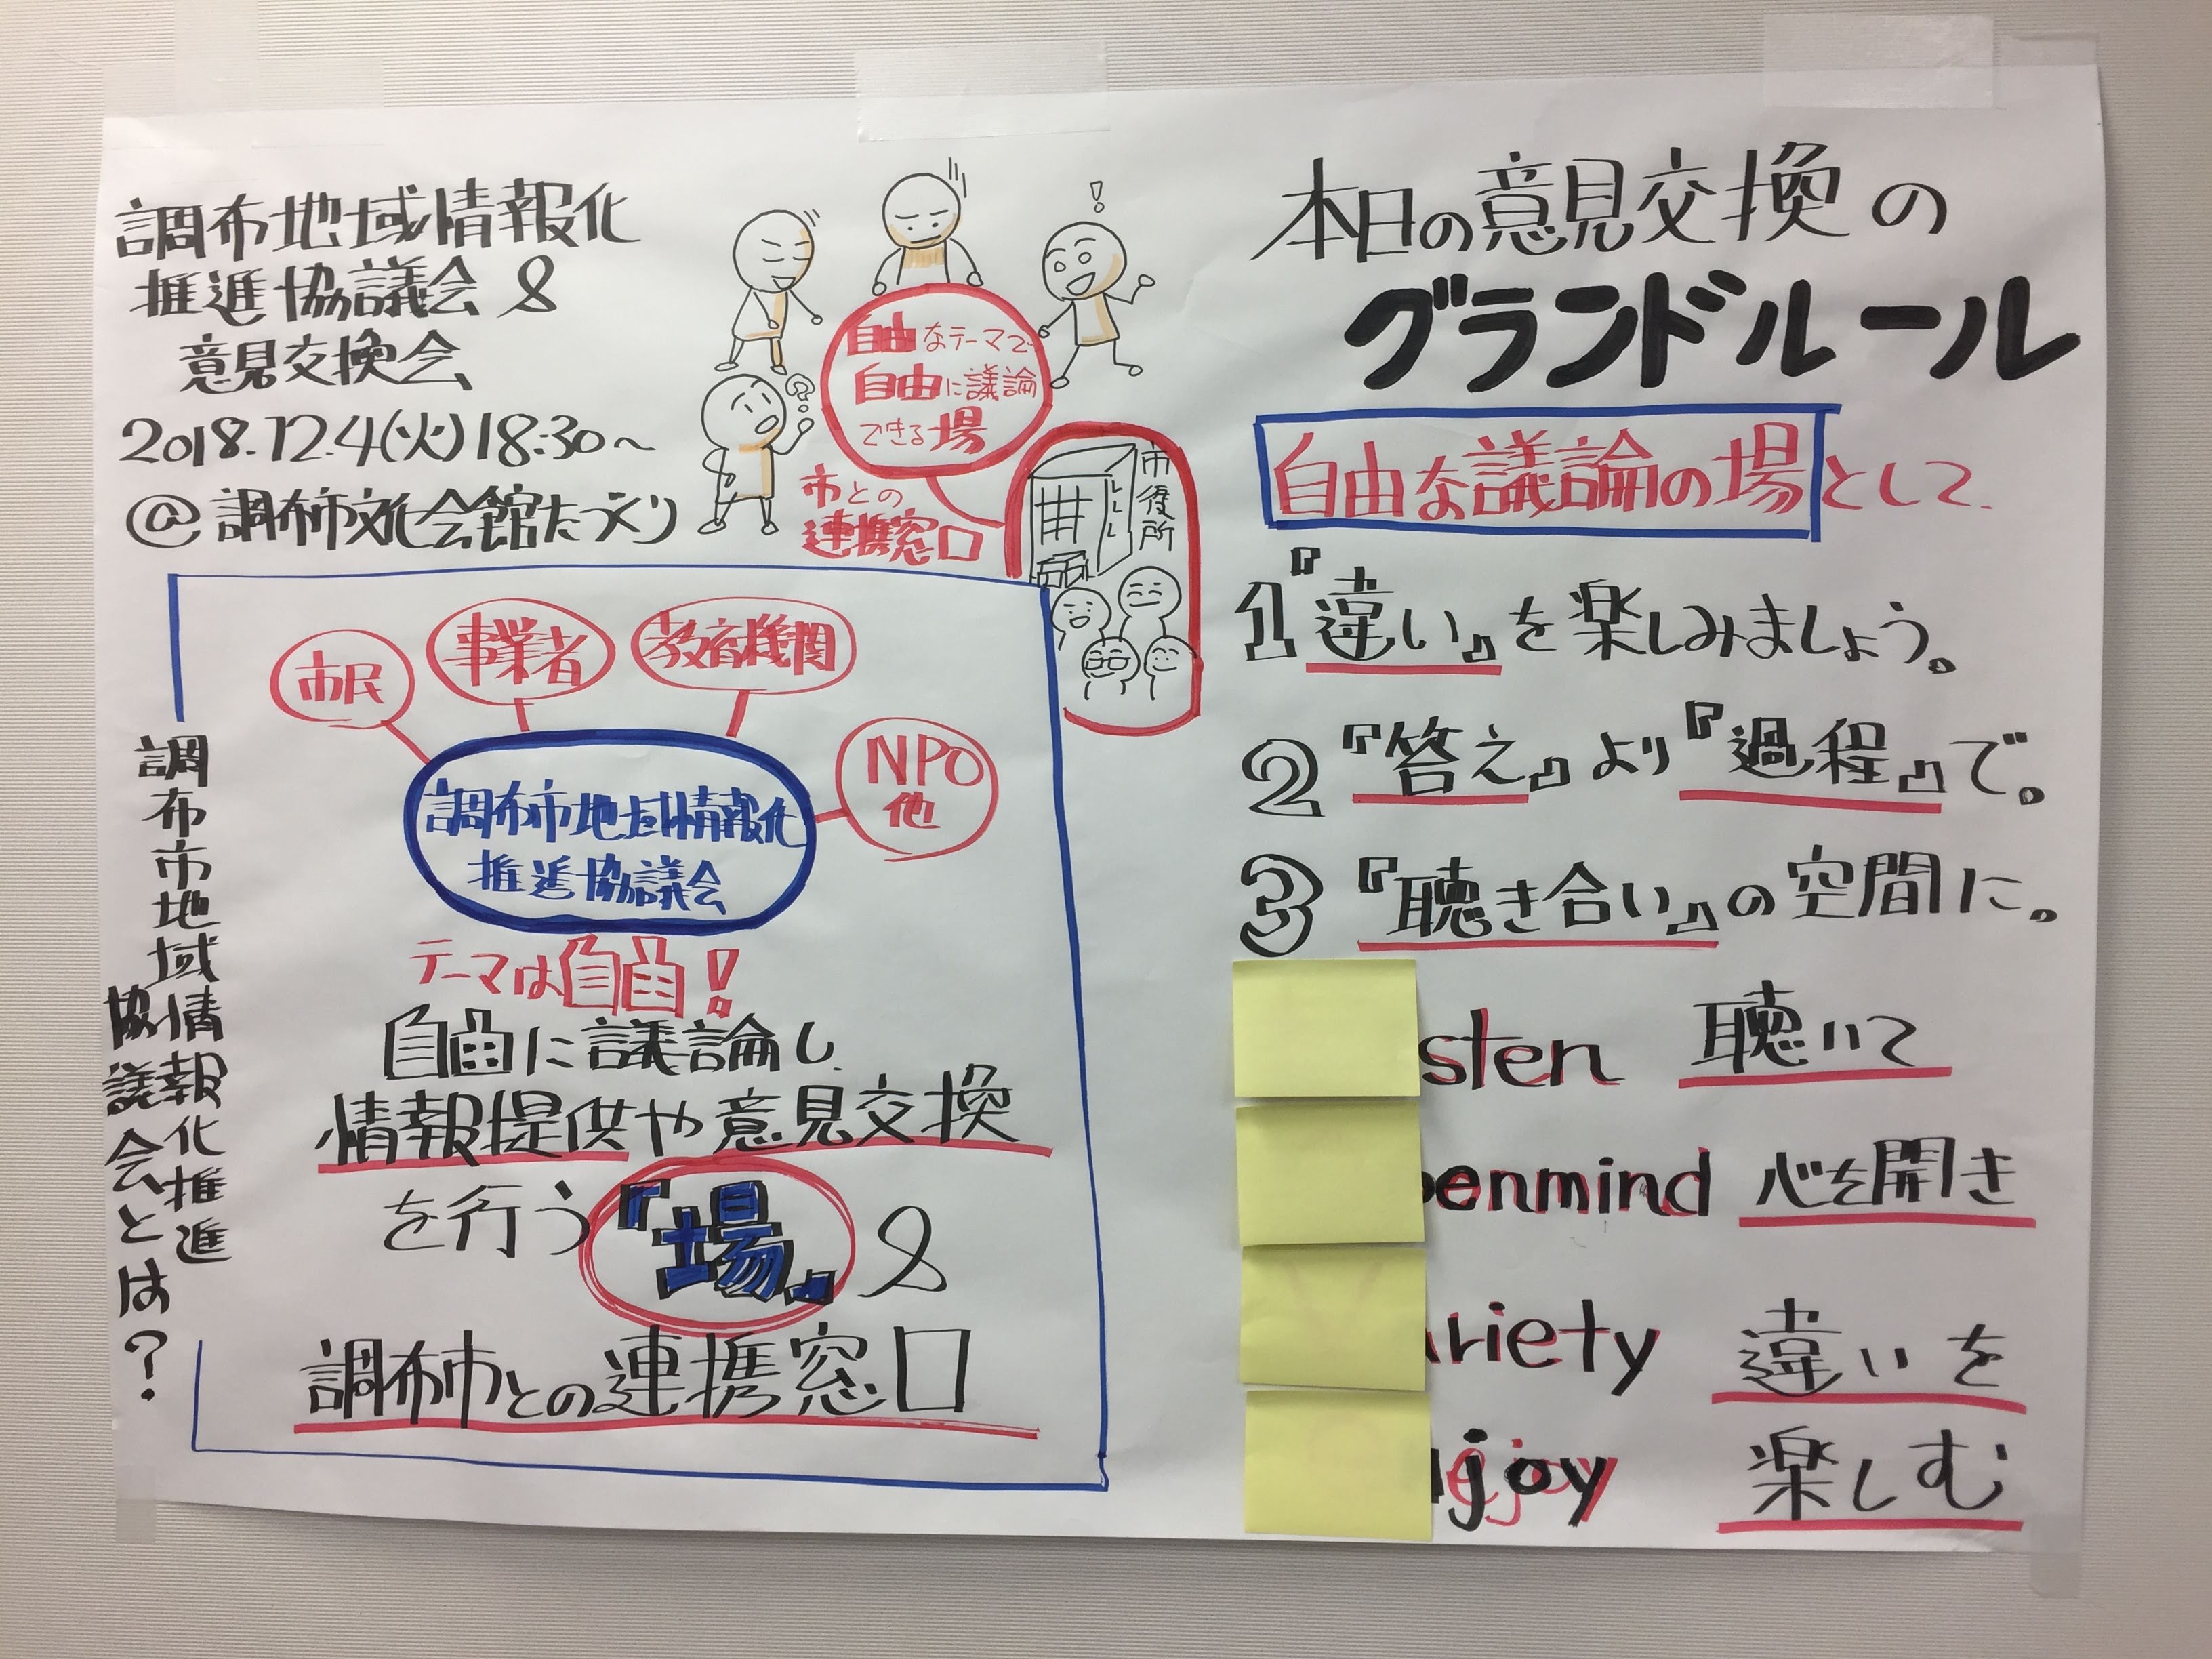 調布地域情報化
推進協議会 &
意見交換会
2018.12.4(火)18:30~
@調布市文化会館たづくり
!
?
自由なテーマで
自由に議論
できる場
市との
連携窓口
市役所
調布市地域情報化推進
協議会とは?
市民
事業者
教育機関
NPO
他
調布市地域情報化
推進協議会
テーマは自由!
自由に議論し、
情報提供や意見交換
を行う『場』&
調布市との連携窓口
本日の意見交換の
グランドルール
自由な議論の場として、
1『違い』を楽しみましょう。
2『答え』より『過程』で。
3『聴き合い』の空間に。
sten 聴いて
penmind 心を開き
riety 違いを
joy 楽しむ